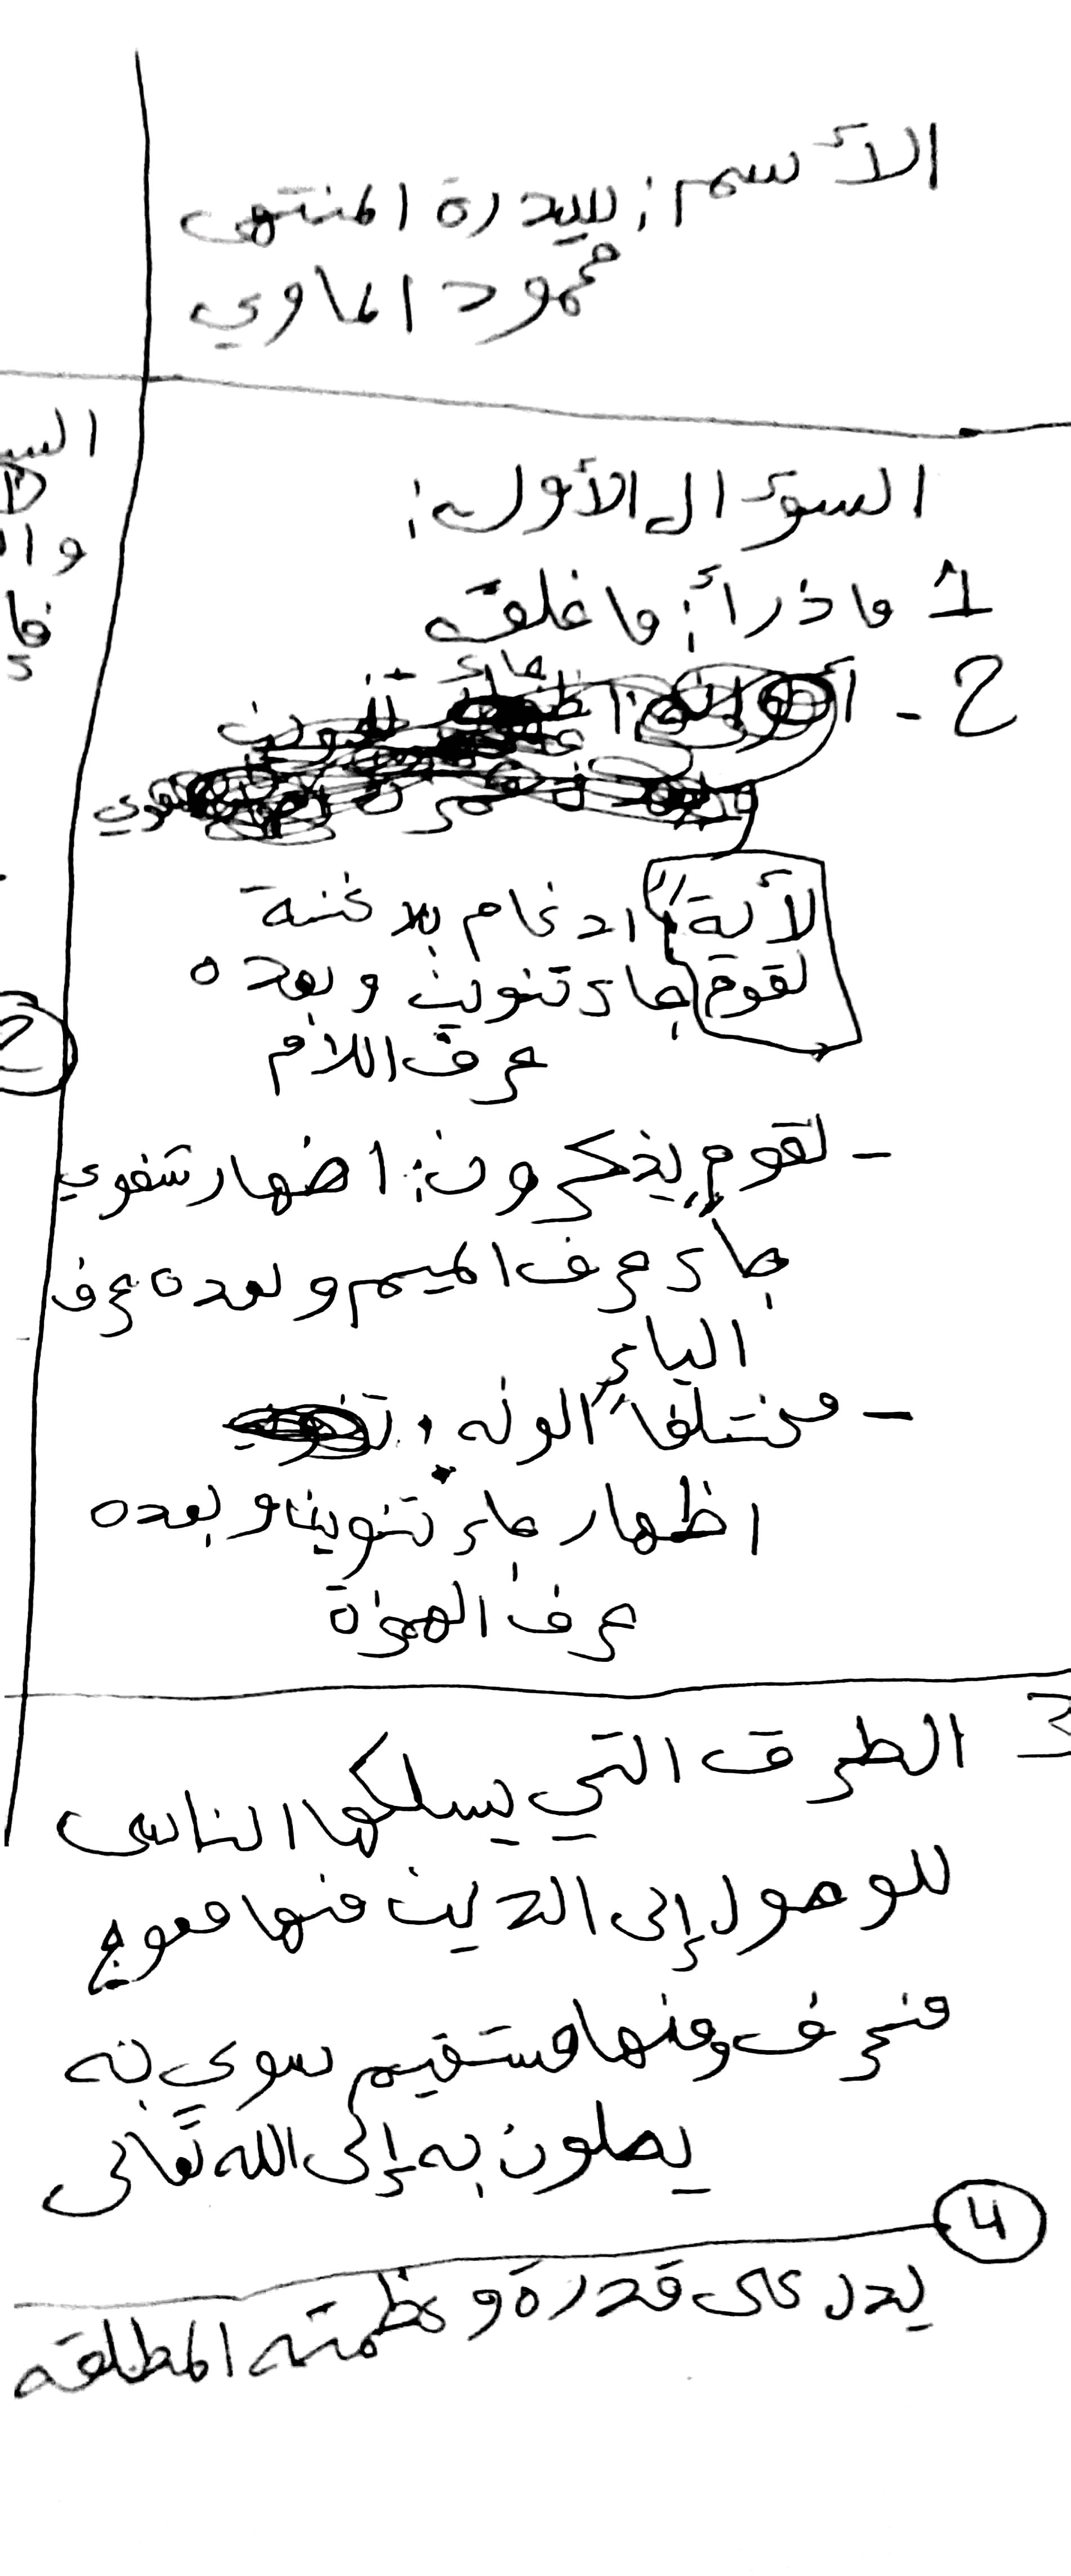 الأسم: سيدرة المنتهى
محمود الماوي
السؤال الأول:
1 ماذرأ: ما خلق
2 - أ
لأية لقوم ادغام بلا غنة
جاء تنوين وبعده
حرف اللام
- لقومٍ يذكرون: اضهار شفوي
جاء حرف الميم وبعده حرف
الياء
- مختلفاً الونه :
اظهار جاء تنوين وبعده
حرف الهمزة
3 الطرق التي يسلكها الناس
للوصول إلى الدين منها معوج
منحرف ومنها مستقيم سوي به
يصلون به إلى الله تعالى
4
يدل على قدرة وعظمته المطلقه
السـ
وا
2